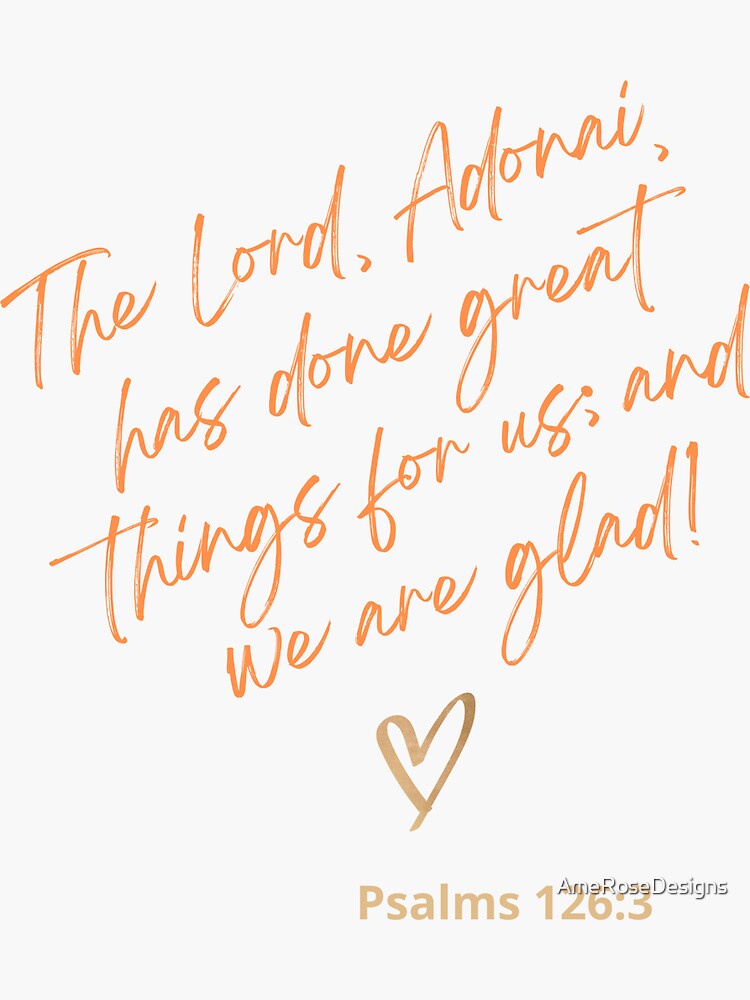 The Lord, Adonai,
has done great
things for us; and
we are glad!
Psalms 126:3
AmeRoseDesigns